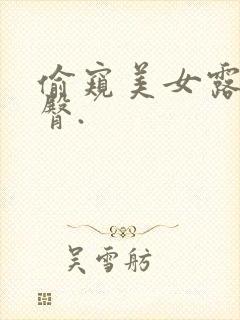 偷窥美女露
臀.
吴雪舫